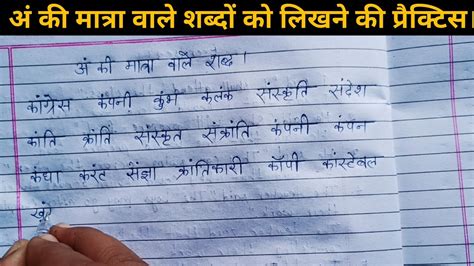 अं की मात्रा वाले शब्दों को लिखने की प्रैक्टिस।
अं की मात्रा वाले शब्द।
कांग्रेस कंपनी कुंभ कलंक संस्कृति संदेश
कांति क्रांति संस्कृत संक्रांति कंपनी कंपन
कंघा करंट संज्ञा क्रांतिकारी कॉपी कांस्टेबल
खुं